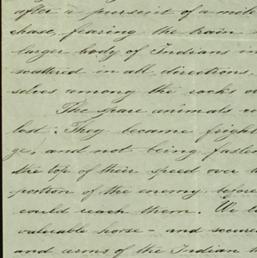 after a pursuit of a mile
chase, fearing the train
larger body of Indians in
scattered in all directions
selves among the rocks
The spare animals
lost. They became fright
ge, and not being fasten
the top of their speed over
portion of the enemy before
could reach them. We
valuable horse – and secured
and arms of the Indian